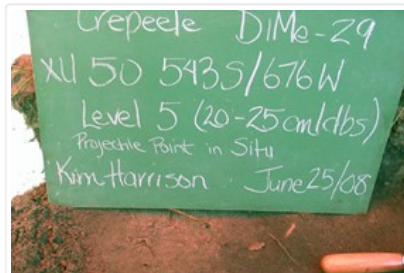 Crepeele DiMe-29
XU 50 543S/676W
Level 5 (20-25cm/dbs)
Projectile Point in Situ
Kim Harrison June 25/08